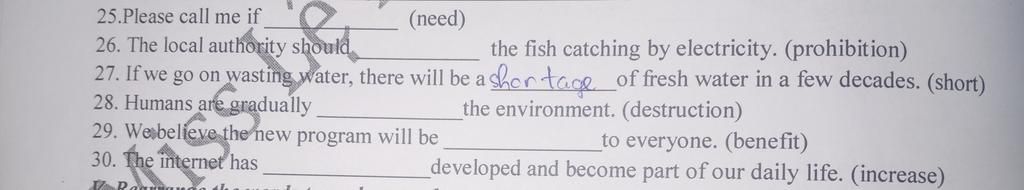 25.Please call me if ______________ (need)
26. The local authority should ______________ the fish catching by electricity. (prohibition)
27. If we go on wasting water, there will be a shortage of fresh water in a few decades. (short)
28. Humans are gradually ______________ the environment. (destruction)
29. We believe the new program will be ______________ to everyone. (benefit)
30. The internet has ______________ developed and become part of our daily life. (increase)